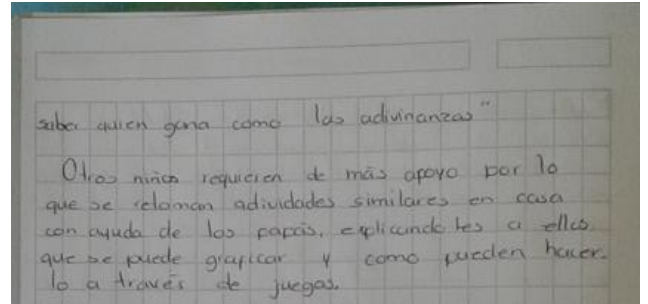 saber quien gana como las adivinanzas"
Otros niños requieren de más apoyo por lo
que se retoman actividades similares en casa
con ayuda de los papás, explicandoles a ellos
que se puede graficar y como pueden hacer
lo a través de juegos.